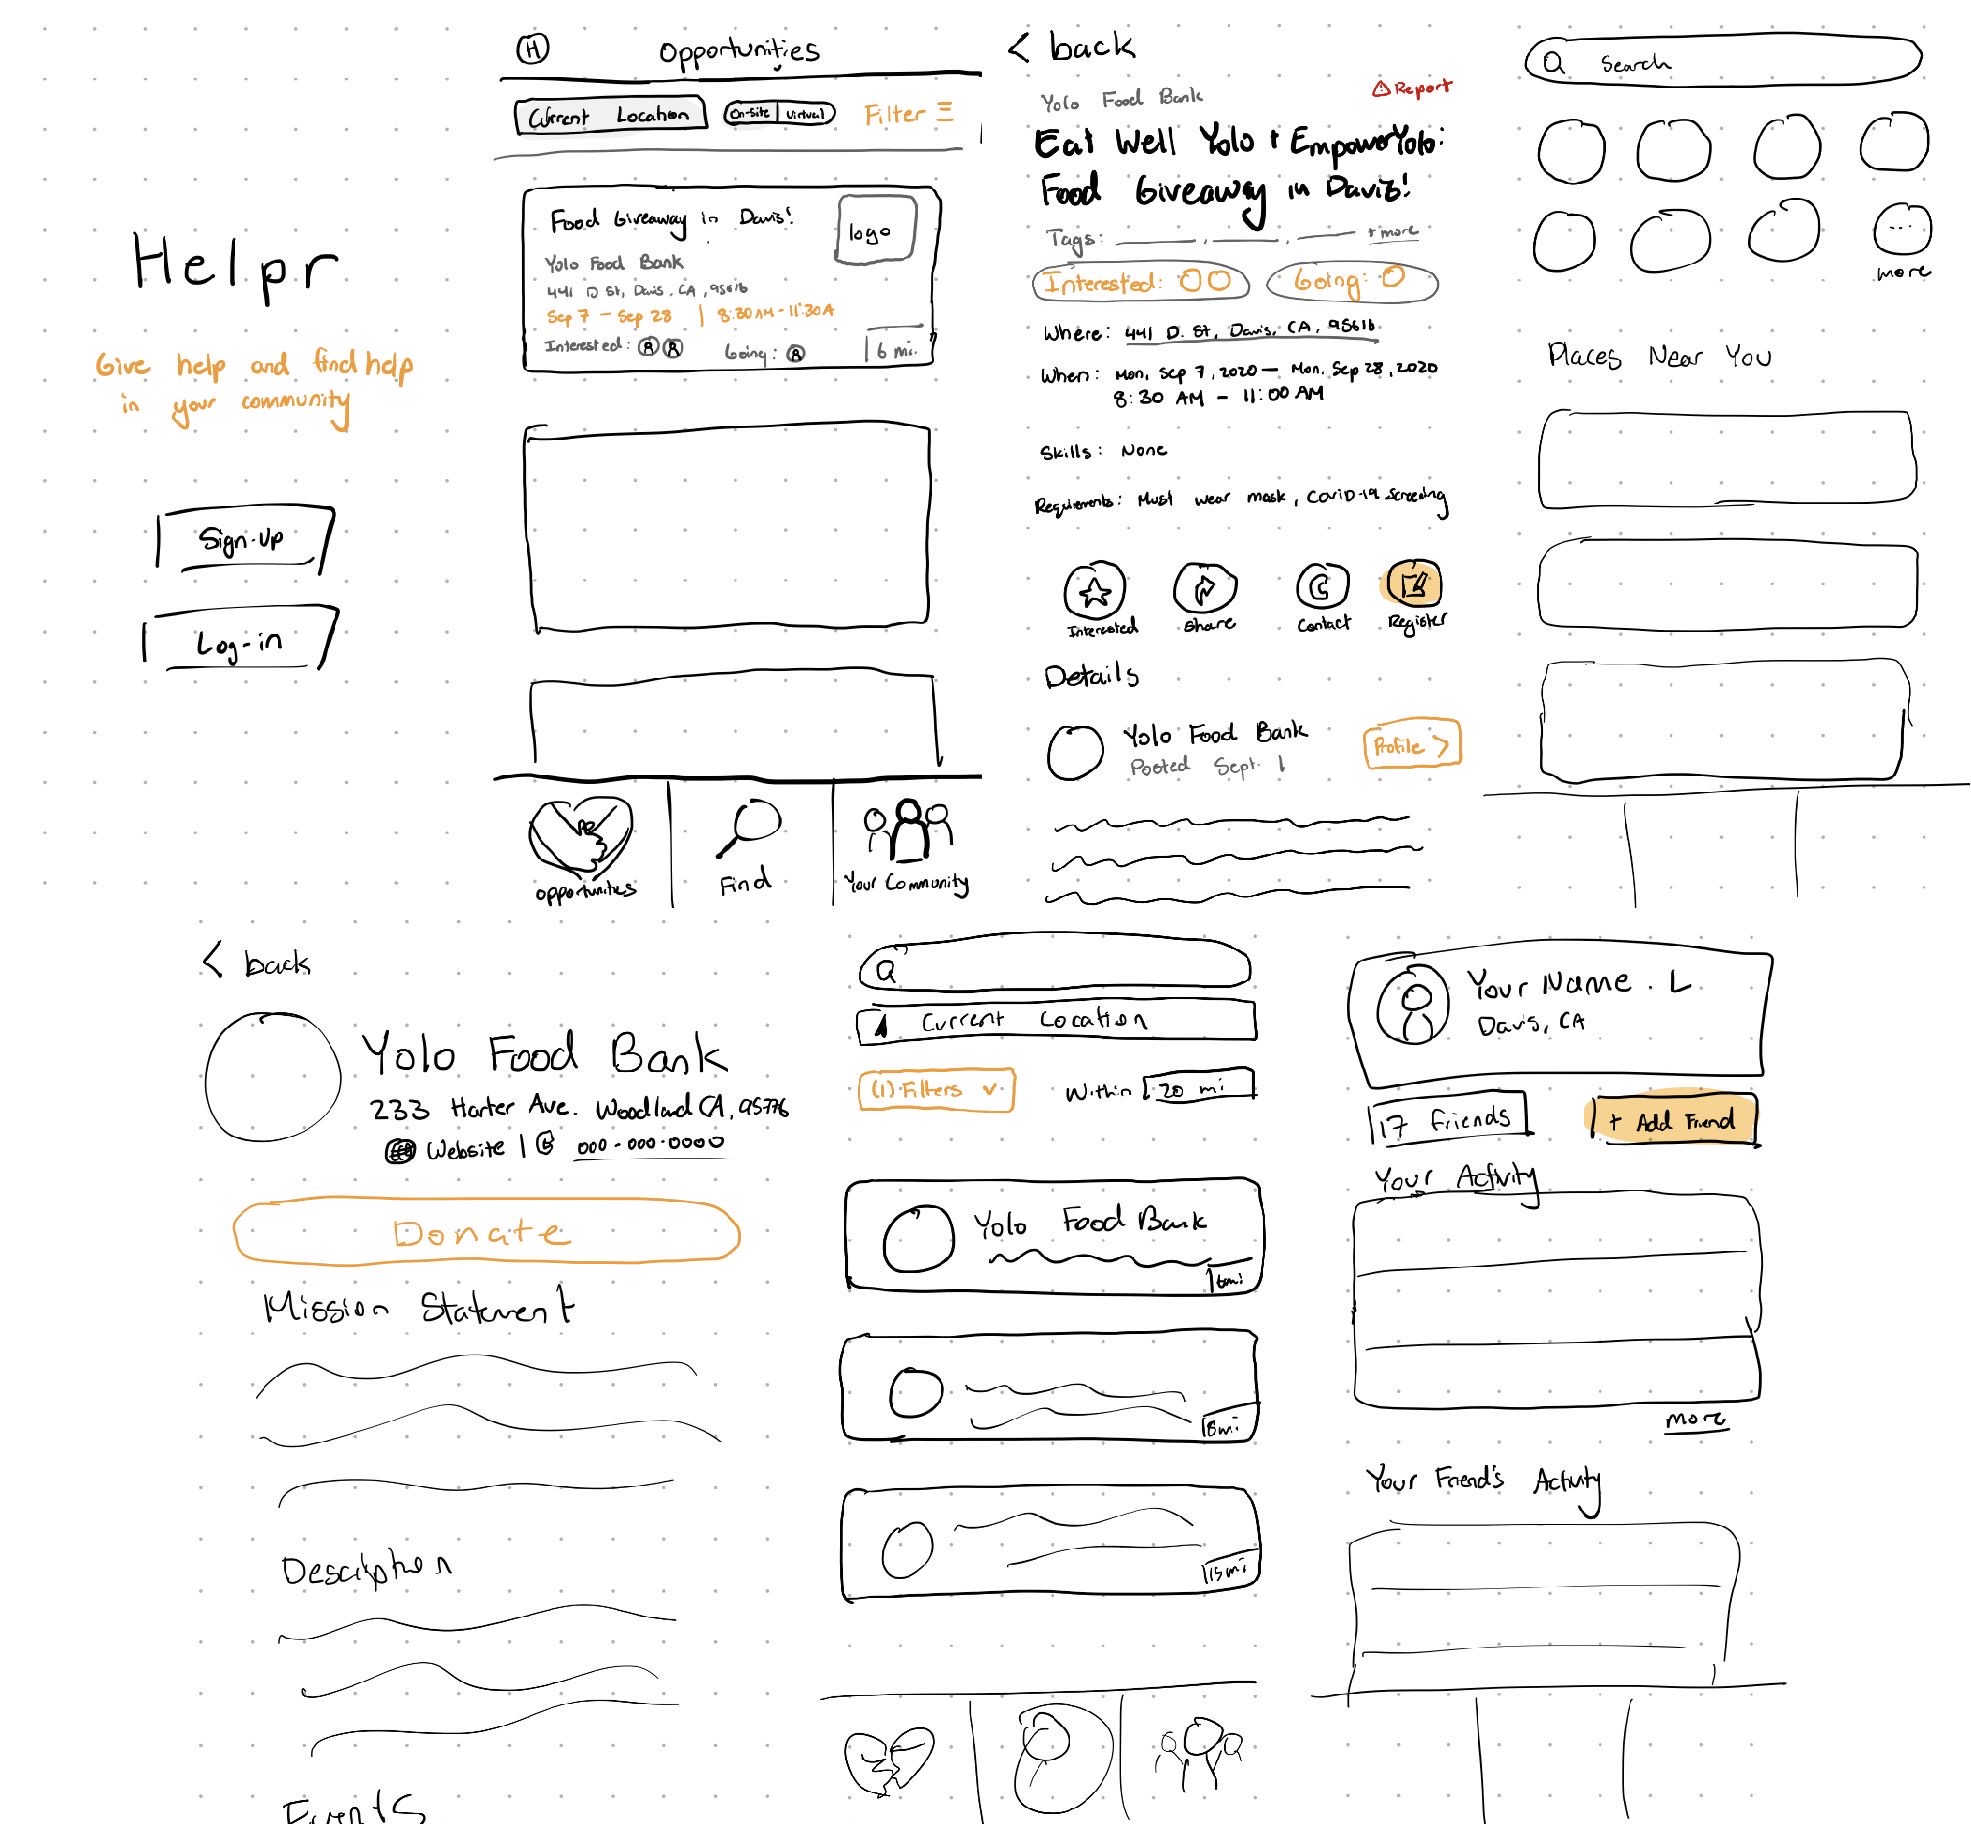 Helpr
Give help and find help
in your community
Sign-Up
Log-in
H
Opportunities
Current Location
On-Site | Virtual
Filter
Food Giveaway in Davis!
logo
Yolo Food Bank
441 D St, Davis, CA, 95616
Sep 7 - Sep 28 | 8:30 AM - 11:30 A
Interested:
Going:
6 mi.
Opportunities
Find
Your Community
< back
Yolo Food Bank
Report
Eat Well Yolo + EmpowerYolo:
Food Giveaway in Davis!
Tags:
+ more
Interested:
Going:
Where: 441 D. St, Davis, CA, 95616
When: Mon, Sep 7, 2020 — Mon. Sep 28, 2020
8:30 AM - 11:00 AM
Skills: None
Requirements: Must wear mask, COVID-19 Screening
Interested
Share
Contact
Register
Details
Yolo Food Bank
Posted Sept. 1
Profile >
Search
...
more
Places Near You
< back
Yolo Food Bank
233 Harter Ave. Woodland CA, 95776
Website | 000-000-0000
Donate
Mission Statement
Description
Events
Current Location
(1) Filters
Within 20 mi
Yolo Food Bank
6mi
8mi
15mi
Your Name. L
Davis, CA
17 Friends
+ Add Friend
Your Activity
more
Your Friend's Activity